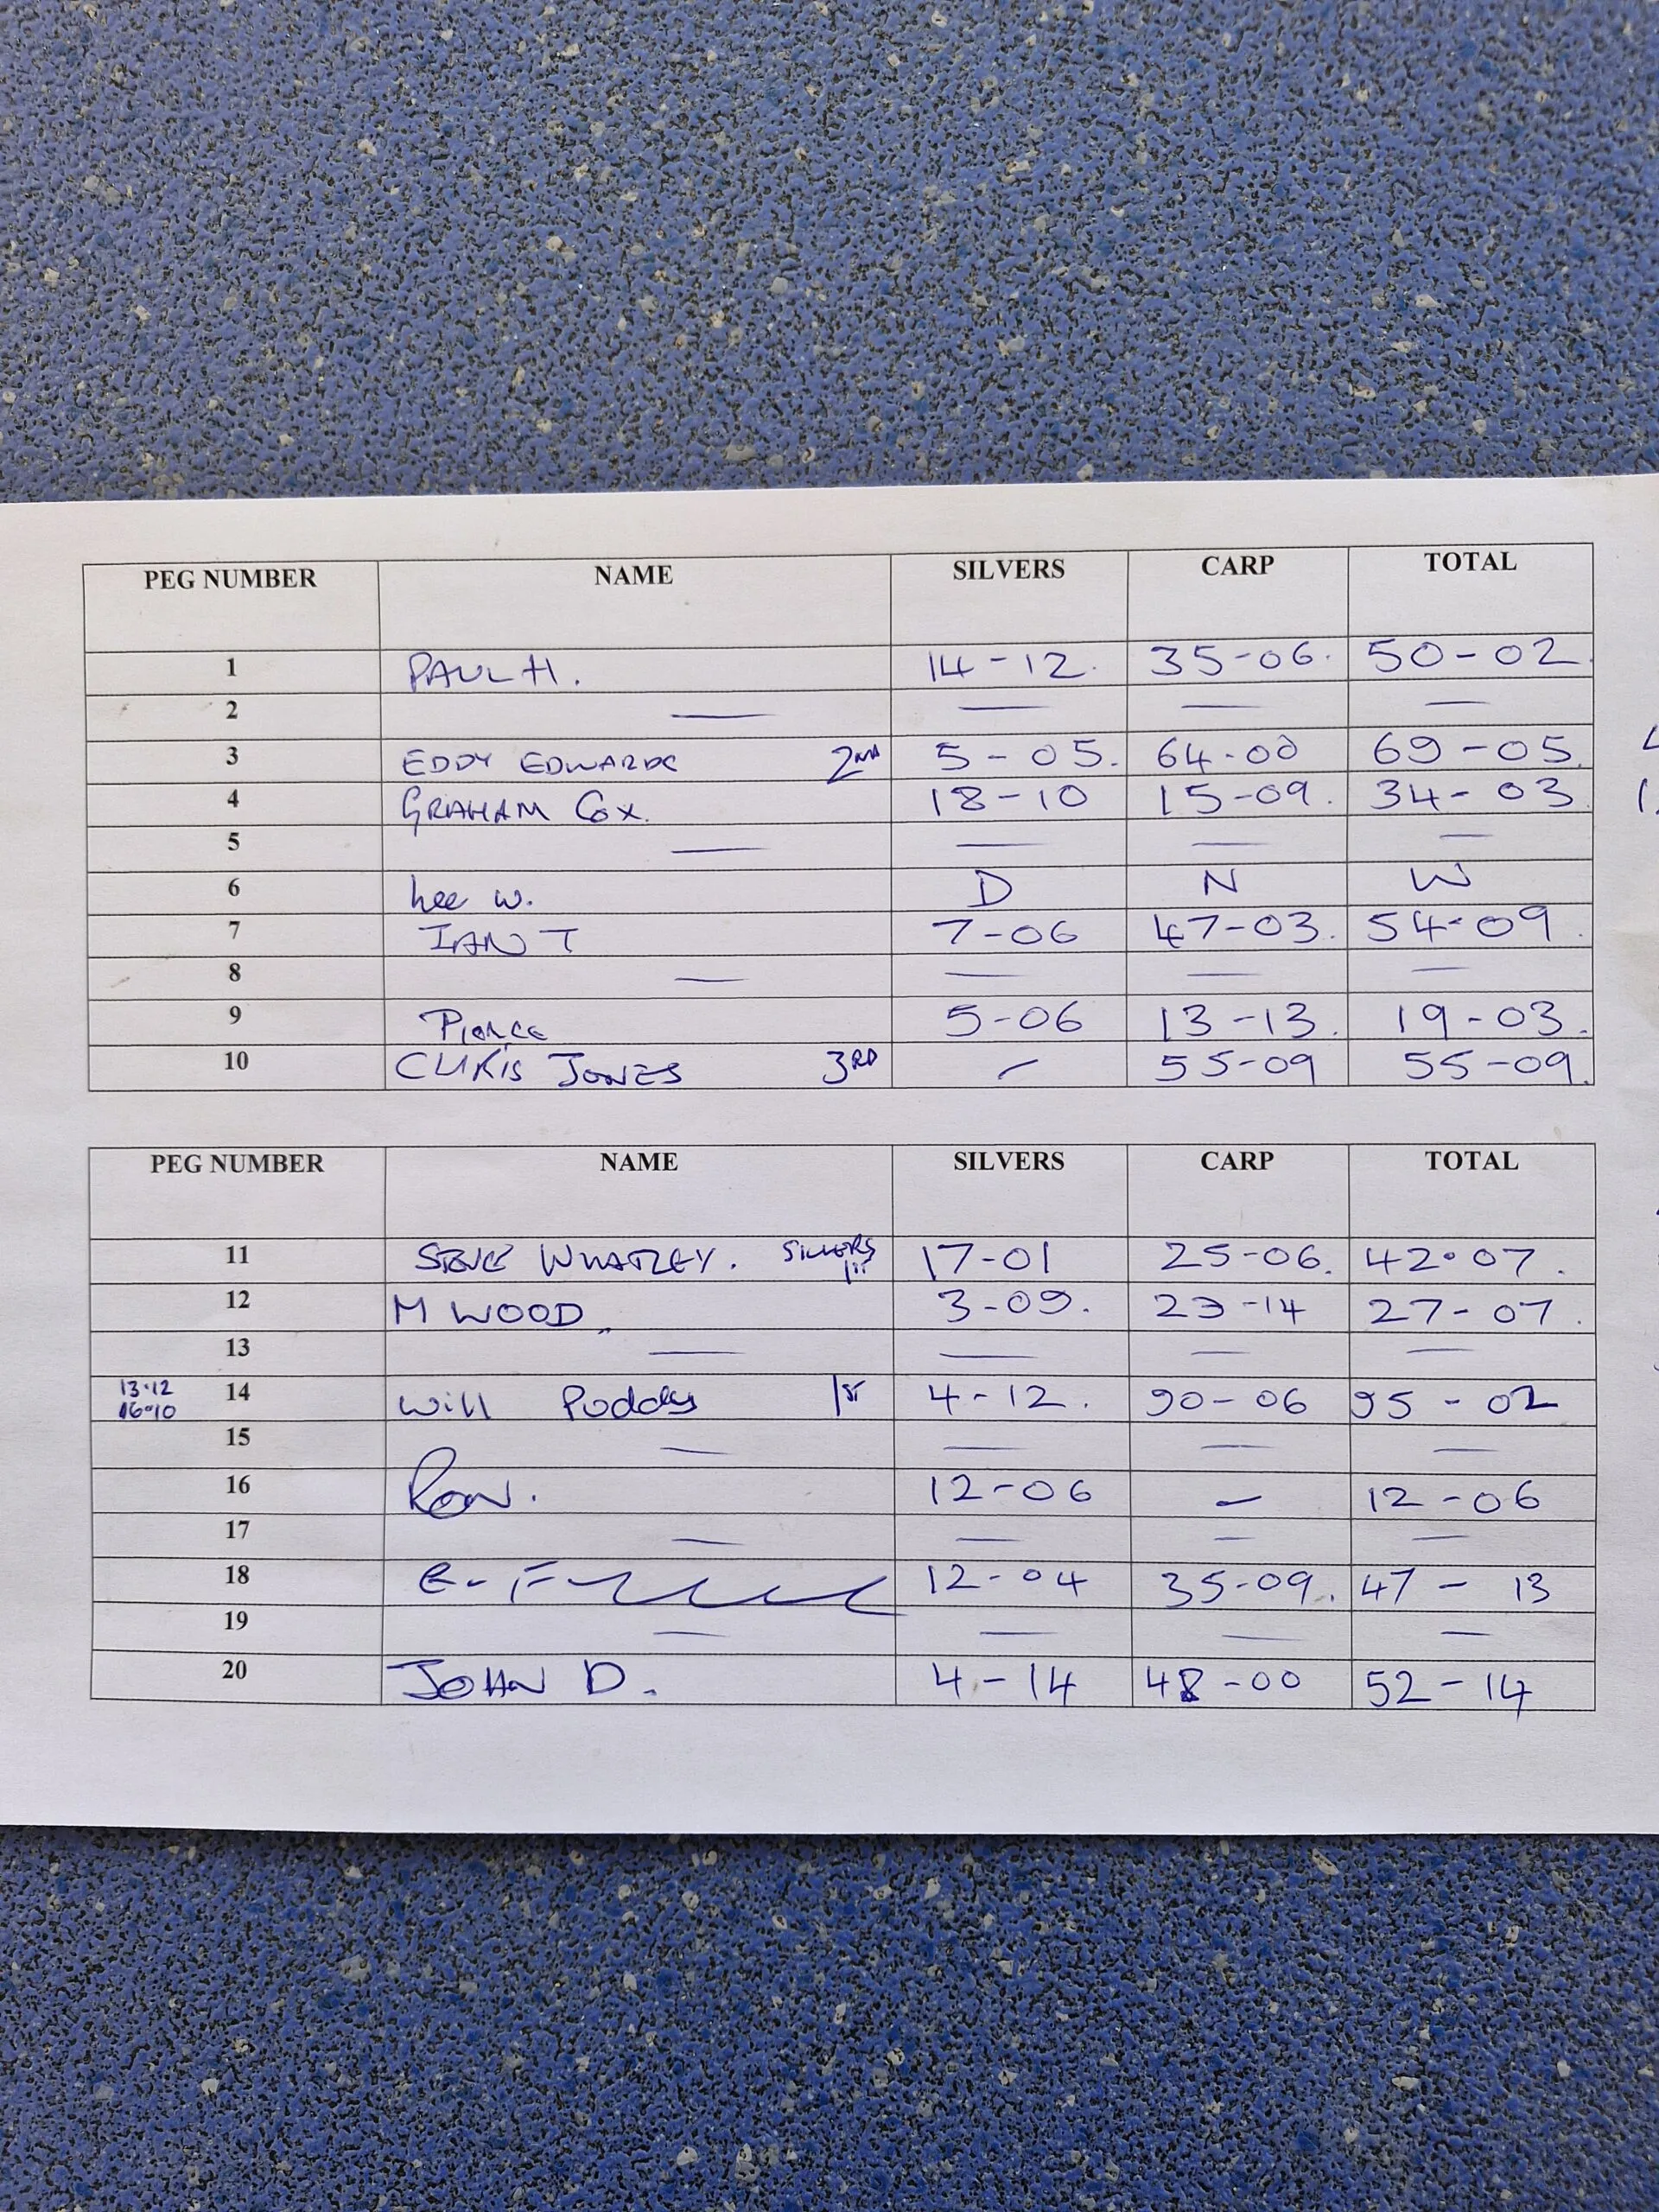 PEG NUMBER NAME SILVERS CARP TOTAL
1 PAUL H. 14-12. 35-06. 50-02
2 — — — —
3 EDDY EDWARDS 2ND 5-05. 64-00 69-05.
4 GRAHAM COX. 18-10 15-09. 34-03
5 — — — —
6 Lee W. D N W
7 IAN T 7-06 47-03. 54-09.
8 — — — —
9 Pierce 5-06 13-13. 19-03.
10 CHRIS JONES 3RD — 55-09 55-09.
PEG NUMBER NAME SILVERS CARP TOTAL
11 STEVE WHATLEY. SILVERS 17-01 25-06. 42-07.
12 M WOOD 3-09. 23-14 27-07.
13 — — — —
13-12
16-10
14 Will 1ST 4-12. 90-06 95-02
15 — — — —
16 RON. 12-06 — 12-06
17 — — — —
18 12-04 35-09. 47-13
19 — — — —
20 JOHN D. 4-14 48-00 52-14